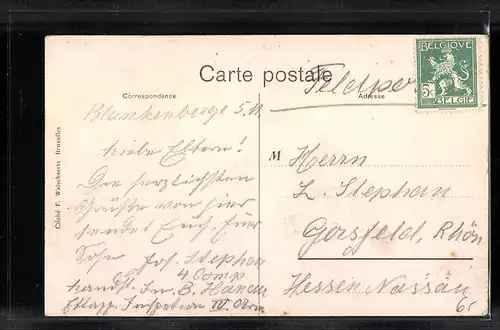 Carte postale
Feldpost
BELGIQUE
5c
BELGIË
Correspondance
Adresse
Blankenberge 5.M.
Liebe Eltern!
Die herzlichsten
Grüße von hier
sendet Euch Euer
Sohn Jos. Stephan
4 Comp
Landst. Inf. B. Hanau
Etapp. Inspektion IV. Arm
M
Herrn
L. Stephan
Gersfeld, Rhön
Hessen Nassau
Cliché F. Walschaerts Bruxelles